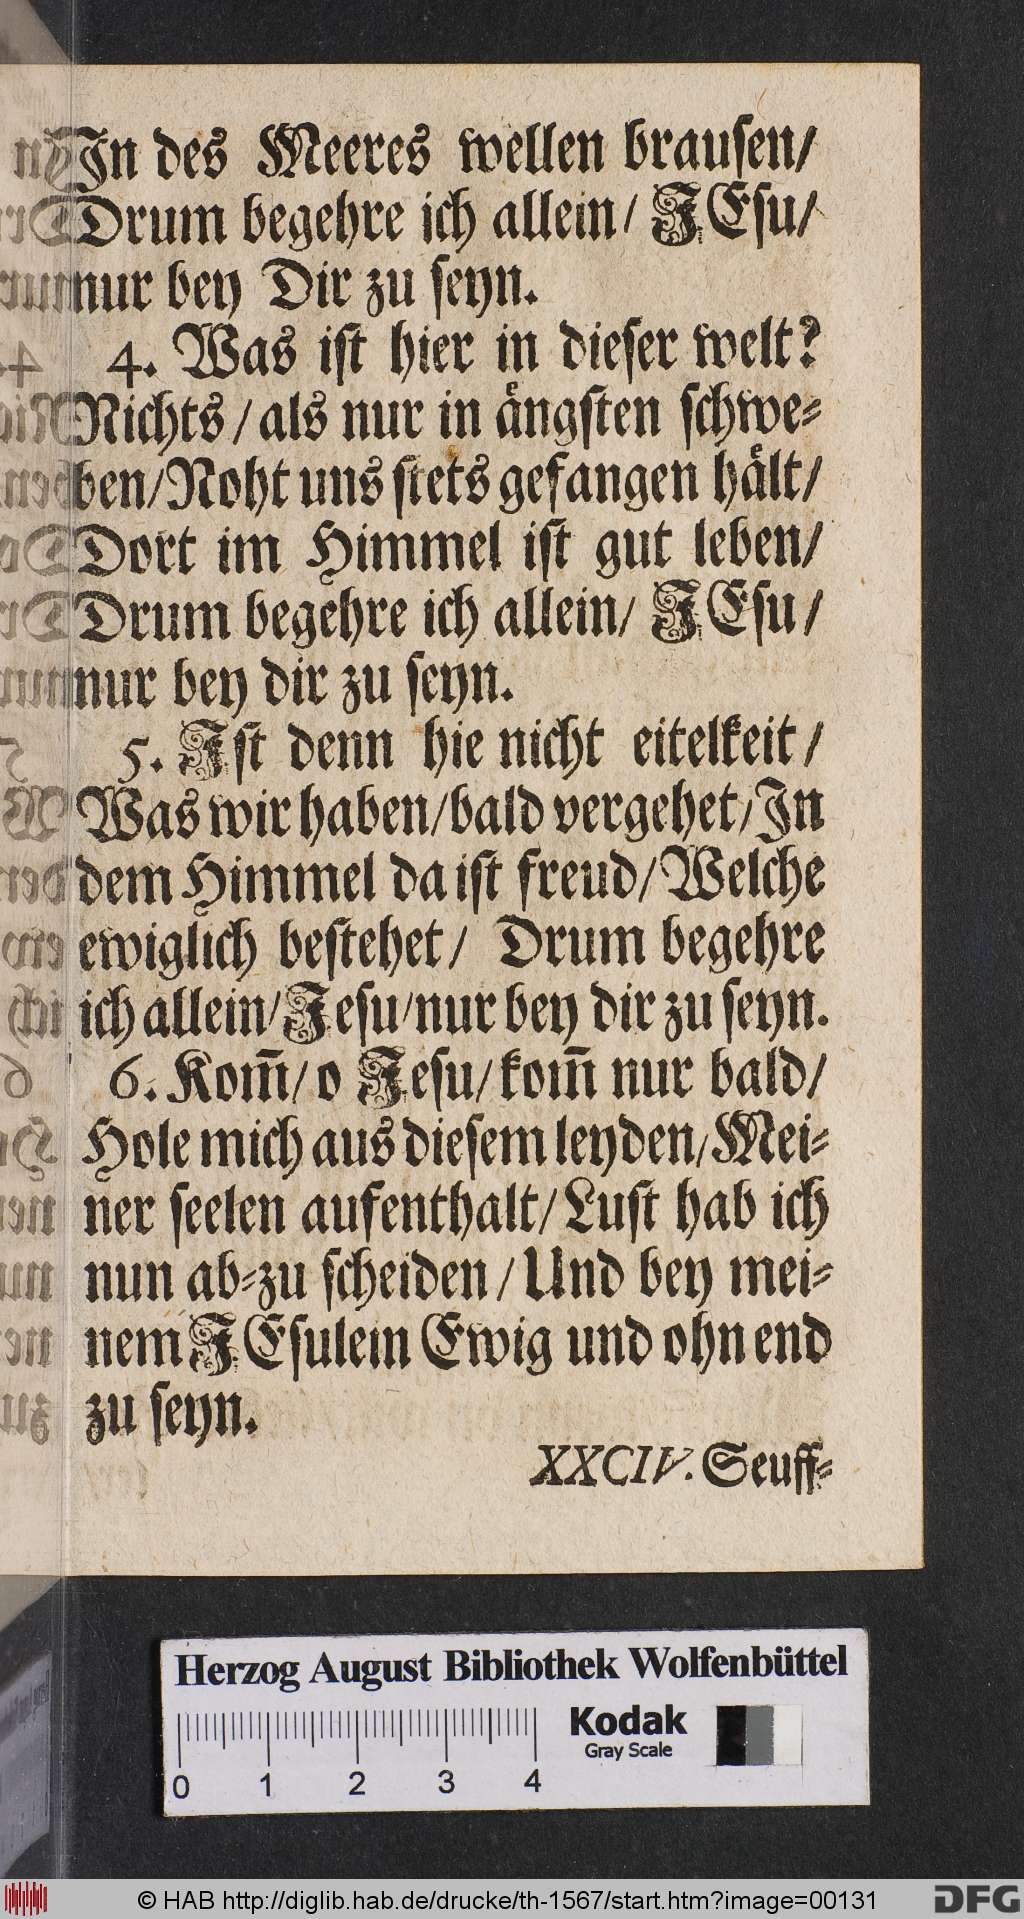 In des Meeres wellen brausen/
Drum begehre ich allein/ JEsu/
nur bey Dir zu seyn.
4. Was ist hier in dieser welt?
Nichts/als nur in ängsten schwe-
ben/Noht uns stets gefangen hält/
Dort im Himmel ist gut leben/
Drum begehre ich allein/ JEsu/
nur bey dir zu seyn.
5. Ist denn hie nicht eitelkeit/
Was wir haben/bald vergehet/In
dem Himmel da ist freud/Welche
ewiglich bestehet/ Drum begehre
ich allein/Jesu/nur bey dir zu seyn.
6. Kom̄/o Jesu/kom̄ nur bald/
Hole mich aus diesem leyden/Mei-
ner seelen aufenthalt/Lust hab ich
nun ab-zu scheiden/Und bey mei-
nem JEsulein Ewig und ohn end
zu seyn.
XXCIV. Seuff-
Herzog August Bibliothek Wolfenbüttel
Kodak
Gray Scale
0 1 2 3 4
© HAB http://diglib.hab.de/drucke/th-1567/start.htm?image=00131
DFG